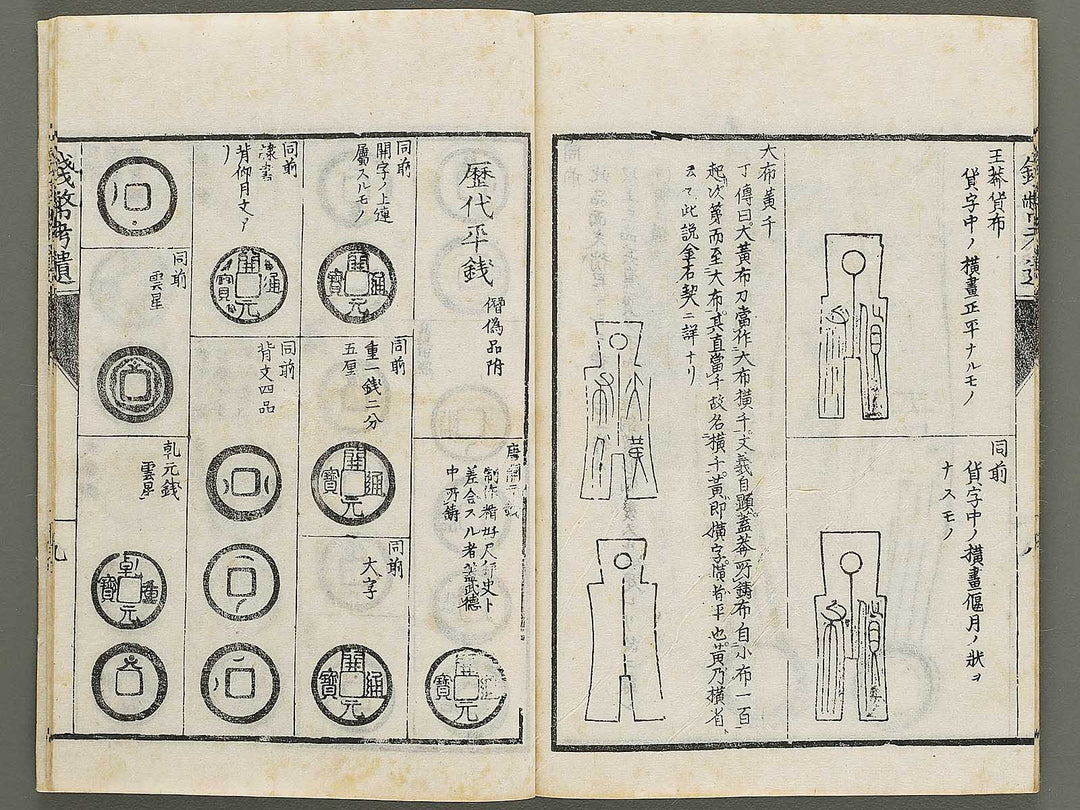 王莽貨布
貨字中ノ横畫正平ナルモノ
同前
貨字中ノ横畫偃月ノ狀ヲ
ナスモノ
大布黃千
丁傳曰大黃布刀當作大布橫千文義自顯蓋莽所鑄布自小布一百
起次第而至大布其直當千故名橫千黃即橫字橫者平也黃乃橫省
云々此說金石契ニ詳ナリ
八
歷代平錢
僭偽品附
制作精好尺度史ト
差合スル者蓋武德
中所鑄
開元通寶
同前
開字ノ上連
屬スルモノ
開元通寶
同前
重一錢二分
五厘
開元通寶
同前
大字
開元通寶
同前
隸書
背仰月文アリ
開元通寶
同前
背文四品
同前
雲星
乾元錢
雲星
乾元重寶
錢幣考遺
九